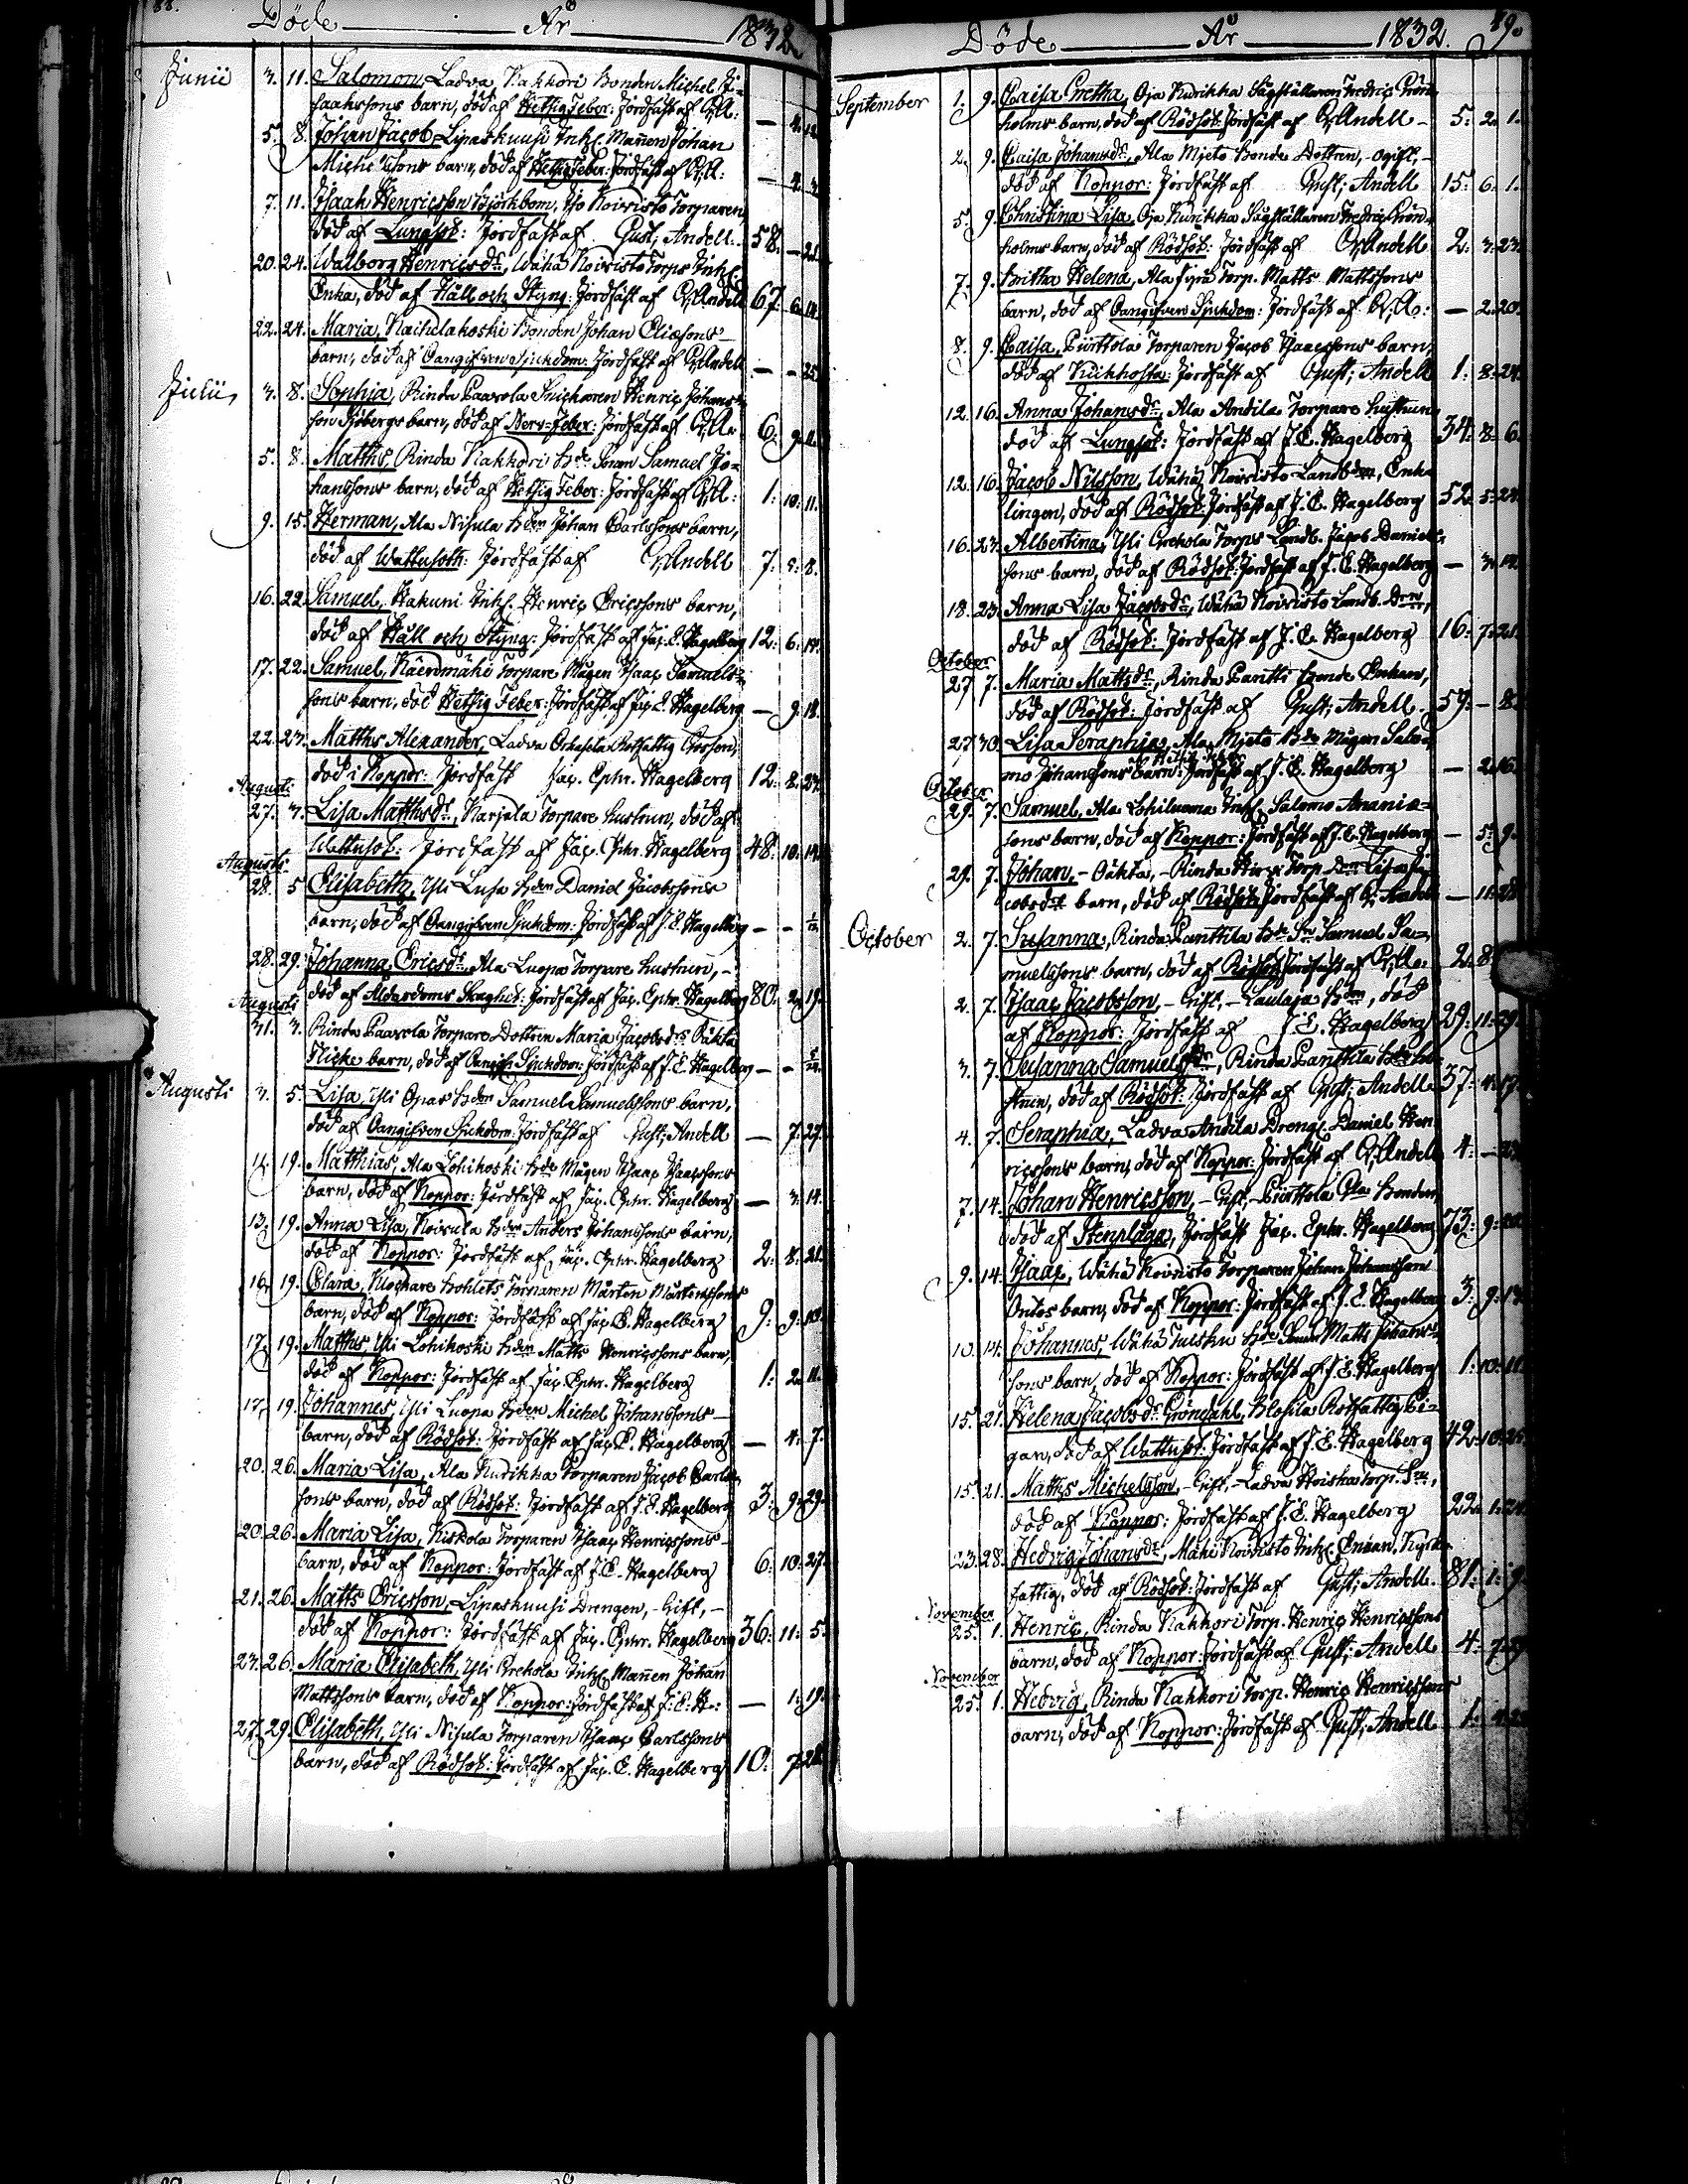 88.
Döde År 1832
Junii 3. 11. Salomon, Ladva Kakkori Bonden Michel J-
saakssons barn, död af Hetsig Feber: Jordfäst af G; A: — 4.
5. 8. Johan Jacob, Lipaskuusi Inh. Mañen Johan
Michelssons barn, död af Hetsig Feber: Jordfäst af G; A: — 4.
7. 11. Isaak Henricsson Björkbom, Iso Koivisto Torparen
död af Lungsot: Jordfäst af Gust; Andell. 58. —
20. 24. Walborg Henricsdr, Wähä Koivisto Torps Inh.
Enka, död af Håll och Styng: Jordfäst af G; Andell 67. 6.
22. 24. Maria, Bonden Johan Eliæsons
barn, död af Oangifven Sjukdom: Jordfäst af G; Andell — — 25.
Julii 3. 8. Sophia, Rinda Paavola Snickaren Henric Johans-
son Sjöbergs barn, död af Nerv-Feber: Jordfäst af G; A: 6. 9. 11.
5. 8. Matths, Rinda Kakkori Bde Sonen Samuel Jo-
hanssons barn, död af Hetsig Feber: Jordfäst af G; A: 1. 10. 11.
9. 15. Herman, Ala Nisula Bden Johan Carlssons barn,
död af Wattusoth: Jordfäst af G; Andell 7. 8.
16. 22. Samuel, Hakuni Inh. Henric Ericssons barn,
död af Håll och Styng: Jordfäst af Jac. E. Hagelberg 12. 6. 14.
17. 22. Samuel, Torpare Mågen Isaac Samuels-
sons barn, död Hetsig Feber: Jordfäst af Jac. E. Hagelberg — 9. 18.
22. 23. Matths Alexander, Ladva Rotfattig Gosson,
död i Koppor: Jordfäst Jac. Ephr. Hagelberg 12. 8. 27.
Augusti
27. 3. Lisa Matthsdr, Karjala Torpare hustrun, död af
Wattusot: Jordfäst af Jac. Ephr. Hagelberg 48. 10. 14.
Augusti
28. 5 Elisabeth, Yli Luopa Bden Daniel Jacobssons
barn, död af Oangifven Sjukdom: Jordfäst af J. E. Hagelberg — —
28. 29. Johanna Ericsdr, Ala Luopa Torpare hustrun, -
död af Ålderdoms Svaghet: Jordfäst af Jac. Ephr. Hagelberg 80. 2. 19.
Augusti
31. 3. Rinda Paavola Torpare Dottren Maria Jacobsdrs Oäkta
Flicke barn, död af Oangifv. Sjukdom: Jordfäst af J. E. Hagelberg — —
Augusti 3. 5. Lisa, Yli Opas Bden Samuel Samuelssons barn,
död af Oangifven Sjukdom: Jordfäst af Gust; Andell — 7. 27.
14. 19. Matthias, Ala Lohikoski Bde Mågen Isaac Isaacssons
barn, död af Koppor: Jordfäst af Jac. Ephr. Hagelberg — 3. 14.
13. 19. Anna Lisa, Koivula Bden Anders Johanssons barn,
död af Koppor: Jordfäst af Jac. Ephr. Hagelberg 2. 8. 21.
16. 19. Clara, Klockare Bohlets Torparen Mårten Mårtenssons
barn, död af Koppor: Jordfäst af Jac. E. Hagelberg 9. 9. 10.
17. 19. Matths, Yli Lohikoski Bden Matts Henricssons barn,
död af Koppor: Jordfäst af Jac. Ephr. Hagelberg 1. 2. 11.
17. 19. Johannes, Yli Luopa Bden Michel Johanssons
barn, död af Rödsot: Jordfäst af Jac. E. Hagelberg — 4. 7.
20. 26. Maria Lisa, Ala Kurikka Torparen Jacob Carls-
sons barn, död af Rödsot: Jordfäst af J. E. Hagelberg 3. 9. 29.
20. 26. Maria Lisa, Kiskola Torparen Isaac Henricssons
barn, död af Koppor: Jordfäst af J. E. Hagelberg 6. 10. 27.
21. 26. Matts Ericsson, Lipaskuusi Drengen, - Gift, -
död af Koppor: Jordfäst af Jac. Ephr. Hagelberg 36. 11. 5.
23. 26. Maria Elisabeth, Yli Grekola Inh. Mañen Johan
Mattssons barn, död af Koppor: Jordfäst af J. E. H: — 1. 19.
27. 29. Elisabeth, Yli Nisula Torparen Isaac Carlssons
barn, död af Rödsot: Jordfäst af Jac. E. Hagelberg 10. 7. 28.
89.
Döde År 1832.
September 1. 9. Caisa Gretha, Oja Kurikka Sågställaren Fredric Grön-
holms barn, död af Rödsot: Jordfäst af G; Andell - 5. 2. 1.
2. 9. Caisa Johansdr, Ala Mjeto Bonde Dottren, - ogift, -
död af Koppor: Jordfäst af Gust; Andell 15. 6. 1.
5. 9. Christina Lisa, Oja Kurikka Sågställaren Fredric Grön-
holms barn, död af Rödsot: Jordfäst af G; Andell 2. 3. 23.
7. 9. Britha Helena, Ala Torp. Matts Mattssons
barn, död af Oangifven Sjukdom: Jordfäst af G; A: — 2. 20.
8. 9. Caisa, Pürttola Torparen Jacob Isaacssons barn,
död af Kikhosta: Jordfäst af Gust; Andell 1. 8. 24.
12. 16. Anna Johansdr, Ala Andila Torpare hustrun,
död af Lungsot: Jordfäst af J. E. Hagelberg 34. 8. 6.
12. 16. Jacob Nilsson, Wähä Koivisto Landbdn, Enk-
lingen, död af Rödsot: Jordfäst af J. E. Hagelberg 52. 5. 24.
16. 23. Albertina, Yli Grekola Torps Landb. Jacob Daniels-
sons barn, död af Rödsot: Jordfäst af J. E. Hagelberg — 3. 14.
18. 23. Anna Lisa Jacobsdr, Wähä Koivisto Landb. Dren,
död af Rödsot: Jordfäst af J. E. Hagelberg 16. 7. 21.
October
27 7. Maria Mattsdr, Rinda Paritti Bonde Enkan,
död af Rödsot: Jordfäst af Gust; Andell. 59. — 8.
27. 30. Lisa Seraphia, Ala Mjeto Bde Mågen Salo-
mo Johanssons barn: Jordfäst af J. E. Hagelberg — 2. 16.
October
29. 7. Samuel, Ala Lohiluoma Inh. Salomo Ananiæ-
sons barn, död af Koppor: Jordfäst af J. E. Hagelberg — 5. 9.
29. 7. Johan, - Oäkta, - Rinda Torp. Dren Lisa Ja-
cobsdrs barn, död af Rödsot: Jordfäst af G; Andell — 11. 28.
October 2. 7. Susanna, Rinda Panttila Bde Sn Samuel Sa-
muelssons barn, död af Rödsot: Jordfäst af G; A: 2. 8.
2. 7. Isaac Jacobsson, - Gift, - Laulaja Bden, död
af Koppor: Jordfäst af J. E. Hagelberg 29. 11. 29.
3. 7. Susanna Samuelsdr, Rinda Panttila Bde hu-
strun, död af Rödsot: Jordfäst af Gust; Andell 37. 4. 17.
4. 7. Seraphia, Ladva Andila Dreng. Daniel Hen-
ricssons barn, död af Koppor: Jordfäst af G; Andell 4. —
7. 14. Johan Henricsson, - Gift, - Pürttola Bonden,
död af Stenplåga, Jordfäst Jac. Ephr. Hagelberg 73. 9.
9. 14. Isaac, Wähä Koivisto Torparen Johan Johansson
Ontos barn, död af Koppor: Jordfäst af J. E. Hagelberg 3. 9. 13.
10. 14. Johannes, Wähä Tuisku Bde Sonen Matts Johans-
sons barn, död af Koppor: Jordfäst af J. E. Hagelberg 1. 10. 11.
15. 21. Helena Jacobsdr Gröndahl, Rotfattig Pi-
gan, död af Wattusot: Jordfäst af J. E. Hagelberg 42. 10. 25.
15. 21. Matths Michelsson, - Gift, - Ladva Torp. Sn,
död af Koppor: Jordfäst af J. E. Hagelberg 22. 1.
23. 28. Hedvig Johansdr, Mäki Koivisto Inh. Enkan, Kyrko-
fattig, död af Rödsot: Jordfäst af Gust; Andell. 81. 1. 9.
November
25. 1. Henric, Rinda Kakkori Torp. Henric Henricssons
barn, död af Koppor: Jordfäst af Gust; Andell 4. 7.
November
25. 1. Hedvig, Rinda Kakkori Torp. Henric Henricssons
barn, död af Koppor: Jordfäst af Gust; Andell 1.